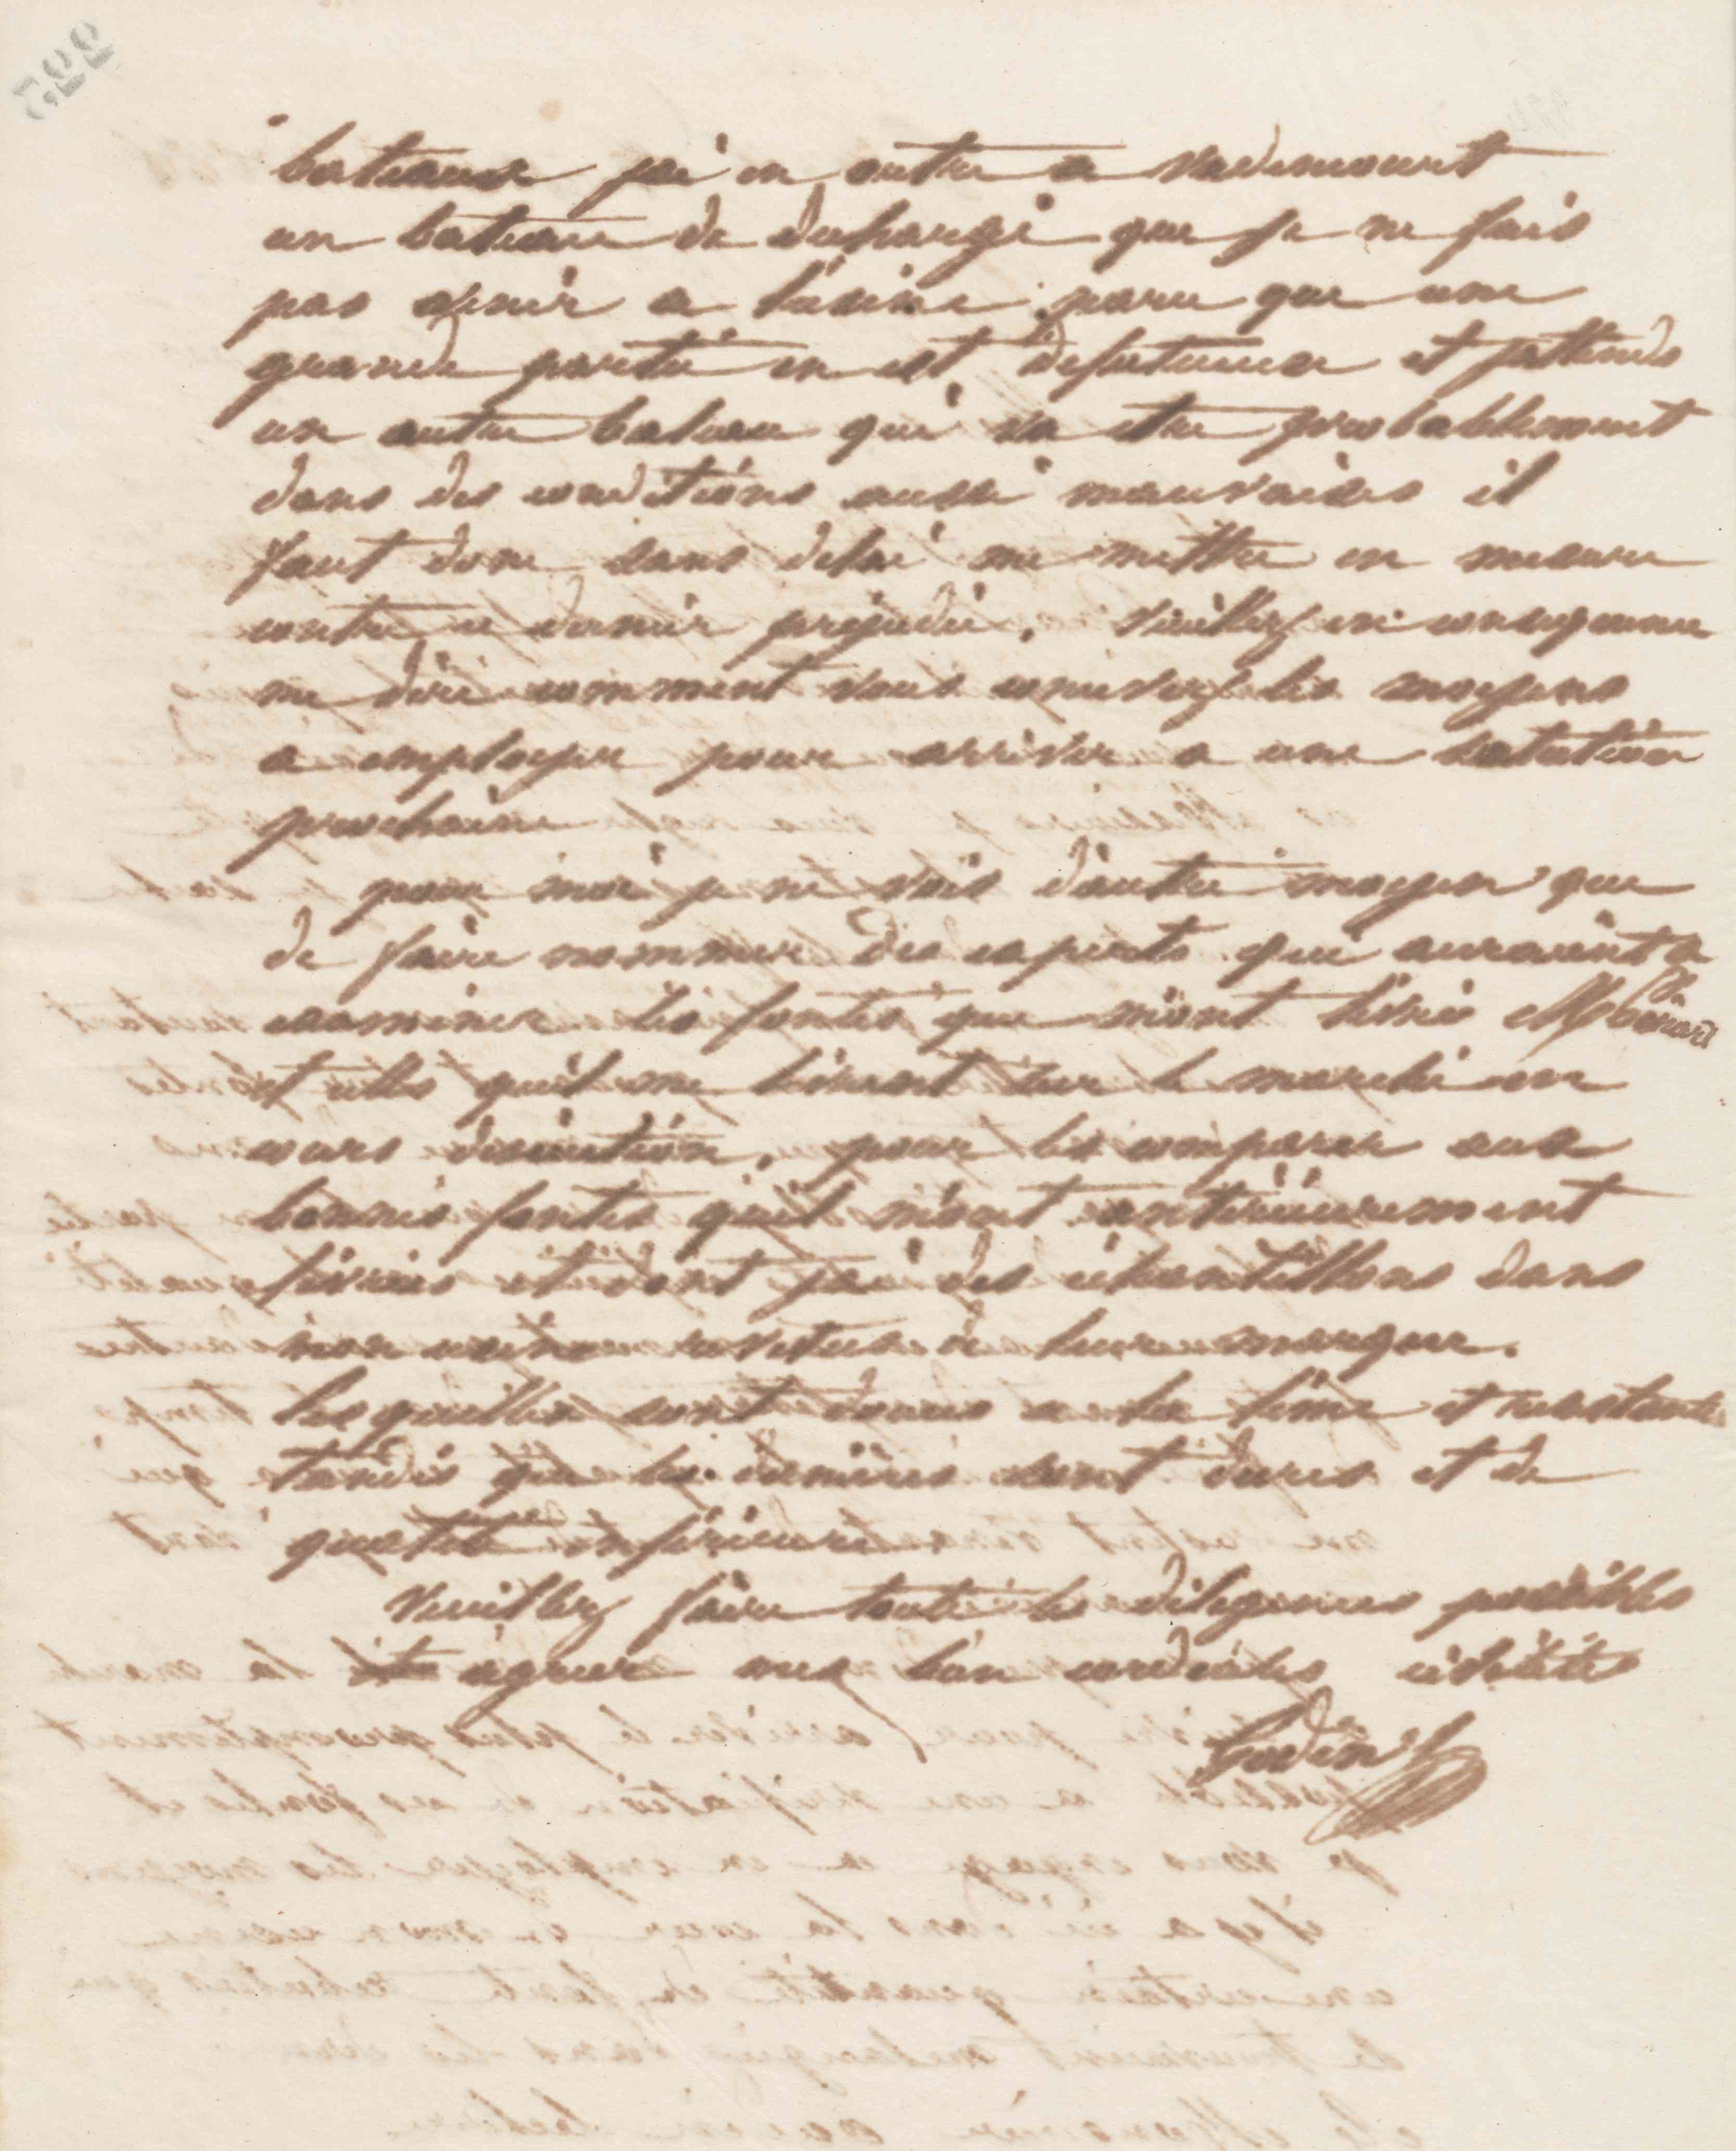 bateaux j'ai en outre a vadencourt
un bateau de decharge que je ne fais
pas venir a l'usine parce que une
grande partie en est defectueuse et j'attends
un autre bateau qui va etre probablement
dans des conditions aussi mauvaises il
faut donc sans delai me mettre en mesure
contre ce dernier prejudice. Veuillez en consequence
me dire comment vous concevez les moyens
a employer pour arriver a une solution
prochaine
pour moi je ne vois d'autre moyen que
de faire nommer des experts qui auraient a
examiner les fontes que m'ont livrées MM
et celles qu'ils me livrent sur le marché en
cours d'exécution, pour les comparer aux
bonnes fontes qu'ils m'ont antérieurement
livrées et dont j'ai des échantillons dans
mon usine revetus de leur marque.
lesquelles sont douces a la lime et resistantes
tandis que les dernières sont dures et de
qualité inférieure
Veuillez faire toutes les diligences possibles
et agréer mes bien cordiales civilités
Godin